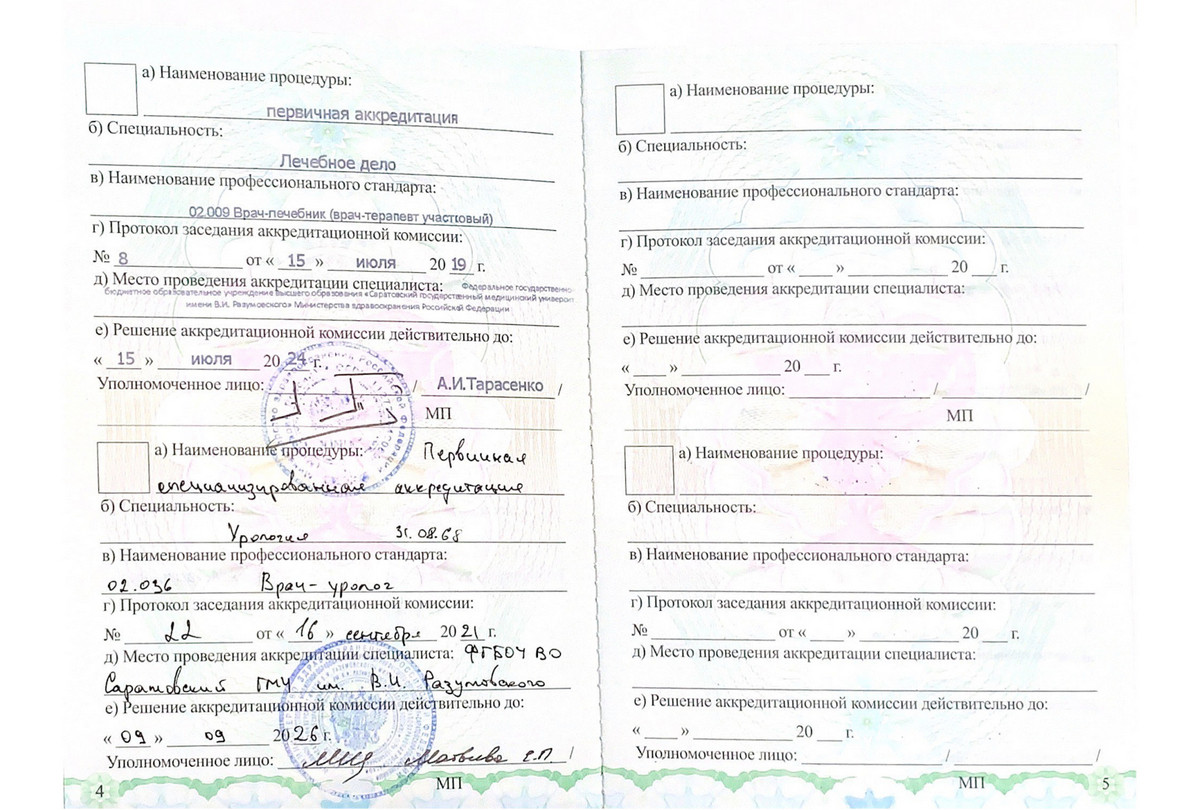 а) Наименование процедуры:
первичная аккредитация
б) Специальность:
Лечебное дело
в) Наименование профессионального стандарта:
02.009 Врач-лечебник (врач-терапевт участковый)
г) Протокол заседания аккредитационной комиссии:
№ 8 от « 15 » июля 20 19 г.
д) Место проведения аккредитации специалиста: Федеральное государственно
бюджетное образовательное учреждение высшего образования «Саратовский государственный медицинский универси
имени В.И. Разумовского» Министерства здравоохранения Российской Федерации
е) Решение аккредитационной комиссии действительно до:
« 15 » июля 20 24 г.
Уполномоченное лицо: / А.И.Тарасенко /
МП
а) Наименование процедуры: Первичная
специализированная аккредитация
б) Специальность:
Урология 31.08.68
в) Наименование профессионального стандарта:
02.036 Врач-уролог
г) Протокол заседания аккредитационной комиссии:
№ 22 от « 16 » сентября 20 21 г.
д) Место проведения аккредитации специалиста: ФГБОУ ВО
Саратовский ГМУ им. В.И. Разумовского
е) Решение аккредитационной комиссии действительно до:
« 09 » 09 20 26 г.
Уполномоченное лицо: Е.П. /
4 МП
а) Наименование процедуры:
б) Специальность:
в) Наименование профессионального стандарта:
г) Протокол заседания аккредитационной комиссии:
№ от « » 20 г.
д) Место проведения аккредитации специалиста:
е) Решение аккредитационной комиссии действительно до:
« » 20 г.
Уполномоченное лицо: / /
МП
а) Наименование процедуры:
б) Специальность:
в) Наименование профессионального стандарта:
г) Протокол заседания аккредитационной комиссии:
№ от « » 20 г.
д) Место проведения аккредитации специалиста:
е) Решение аккредитационной комиссии действительно до:
« » 20 г.
Уполномоченное лицо: / /
МП 5